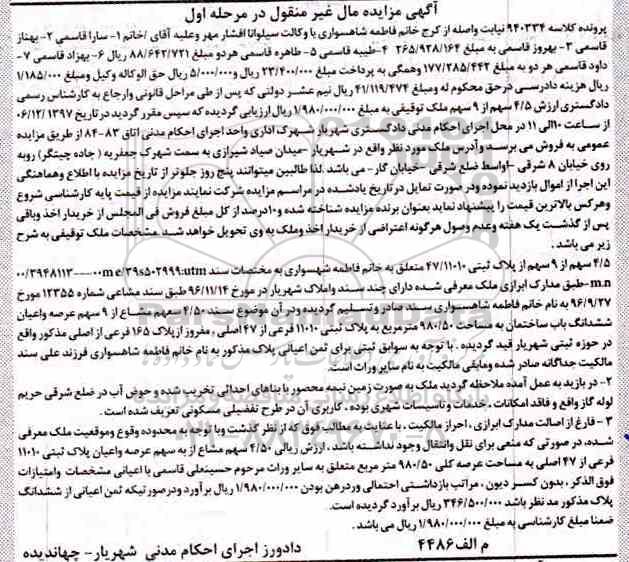 آگهی مزایده مال غیر منقول در مرحله اول
پرونده کلاسه ۹۴۰۳۳۴ نیابت واصله از کرج خانم فاطمه شاهسواری با وکالت سیلوانا افشار مهر وعلیه آقای /خانم ۱- سارا قاسمی ۲- بهناز
قاسمی ۳- بهروز قاسمی به مبلغ ۲۶۵/۹۲۸/۱۶۴ ۴-طیبه قاسمی ۵- طاهره قاسمی هر دو مبلغ ۸۸/۶۴۲/۷۲۱ ریال ۶- بهزاد قاسمی ۷-
داود قاسمی هر دو به مبلغ ۱۷۷/۲۸۵/۴۴۲ وهمگی به پرداخت مبلغ ۲۳/۴۰۰/۰۰۰ ریال و ۵/۰۰۰/۰۰۰ ریال حق الوکاله وکیل ومبلغ ۱/۱۸۵/۰۰۰
ریال هزینه دادرسی درحق محکوم له ومبلغ ۴۱/۱۱۹/۴۷۴ ریال نیم عشر دولتی که پس از طی مراحل قانونی وارجاع به کارشناس رسمی
دادگستری ارزش ۴/۵ سهم از ۹ سهم ملک توقیفی به مبلغ ۱/۹۸۰/۰۰۰/۰۰۰ ریال ارزیابی گردیده که سپس مقرر گردید در تاریخ ۰۶/۱۲/۱۳۹۷
از ساعت ۱۰الی ۱۱ در محل اجرای احکام مدنی دادگستری شهریار شهرک اداری واحد اجرای احکام مدنی اتاق ۸۳-۸۴ از طریق مزایده
عمومی به فروش می برسد وآدرس ملک مورد نظر واقع در شهریار -میدان صیاد شیرازی به سمت شهرک جعفریه ( جاده چیتگر) روبه
روی خیابان ۸ شرقی -اواسط ضلع شرقی -خیابان گاز- می باشد .لذا طالبین میتوانند پنج روز جلوتر از تاریخ مزایده با اطلاع وهماهنگی
این اجرا از اموال بازدید نموده ودر صورت تمایل در تاریخ یادشده در مراسم مزایده شرکت نمایند مزایده از قیمت پایه کارشناسی شروع
وهرکس بالاترین قیمت را پیشنهاد نماید بعنوان برنده مزایده شناخته شده و ۱۰درصد از کل مبلغ فروش فی المجلس از خریدار اخذ وباقی
پس از گذشت یک هفته وعدم وصول هرگونه اعتراضی از خریدار اخذ وملک به وی تحویل خواهد شد .مشخصات ملک توقیفی به شرح
زیر می باشد .
۴/۵ سهم از ۹ سهم از پلاک ثبتی ۴۷/۱۱۰۱۰ متعلق به خانم فاطمه شهسواری به مختصات سند
m.n -طبق مدارک ابرازی ملک معرفی شده دارای چند سند واملاک شهریار در مورخ ۹۶/۱۱/۱۴ طبق سند مشاعی شماره ۱۲۳۵۵ مورخ
۹۶/۹/۲۷ به نام خانم فاطمه شاهسواری سند صادر وتسلیم گردیده ودر آن موضوع بسند ۴/۵۰ سهم مشاع از ۹ سهم عرصه واعیان
ششدانگ باب ساختمان به مساحت ۹۸۰/۵۰ مترمربع به پلاک ثبتی ۱۱۰۱۰ فرعی از ۴۷ اصلی ، مفروز ازپلاک ۱۶۵ فرعی از اصلی مذکور واقع
در حوزه ثبتی شهریار قید گردیده . با توجه به سوابق ثبتی برای ثمن اعیانی پلاک مذکور به نام خانم فاطمه شاهسواری فرزند علی سند
مالکیت جداگانه صادر شده ومابقی مالکیت به نام سایر وراث است.
۲- در بازدید به عمل آمده ملاحظه گردید ملک به صورت زمین نیمه محصور با بناهای احداثی تخریب شده و حوض آب در ضلع شرقی حریم
لوله گاز واقع و فاقد امکانات . خدمات وتاسیسات شهری بوده . کاربری آن در طرح تفصیلی مسکونی تعریف شده است .
۳ - فارغ از اصالت مدارک ابرازی ، احراز مالکیت ، با عنایت به مطالب فوق که از نظر گذشت وبا توجه به محدوده وقوع وموقعیت ملک معرفی
شده، در صورتی که منعی برای نقل وانتقال وجود نداشته باشد . ارزش ریالی ۴/۵۰ سهم مشاع از به سهم عرصه واعیان پلاک ثبتی ۱۱۰۱۰
فرعی از ۴۷ اصلی به مساحت عرصه کلی ۹۸۰/۵۰ متر مربع متعلق به سایر وراث مرحوم حسینعلی قاسمی با اعیانی مشخصات وامتیازات
فوق الذکر ، بدون کسر دیون ، مراتب بازداشتی احتمالی ودرهن بودن ۱/۹۸۰/۰۰۰/۰۰۰ ریال برآورد ودرصورتیکه ثمن اعیانی از ششدانگ
پلاک مذکور مد نظر باشد ۳۴۶/۵۰۰/۰۰۰ ریال برآورد گردیده است.
ضمنا مبلغ کارشناسی به مبلغ ۱/۹۸۰/۰۰۰/۰۰۰ ریال می باشد .
م الف ۴۴۸۶ دادورز اجرای احکام مدنی شهریار- جهاندیده